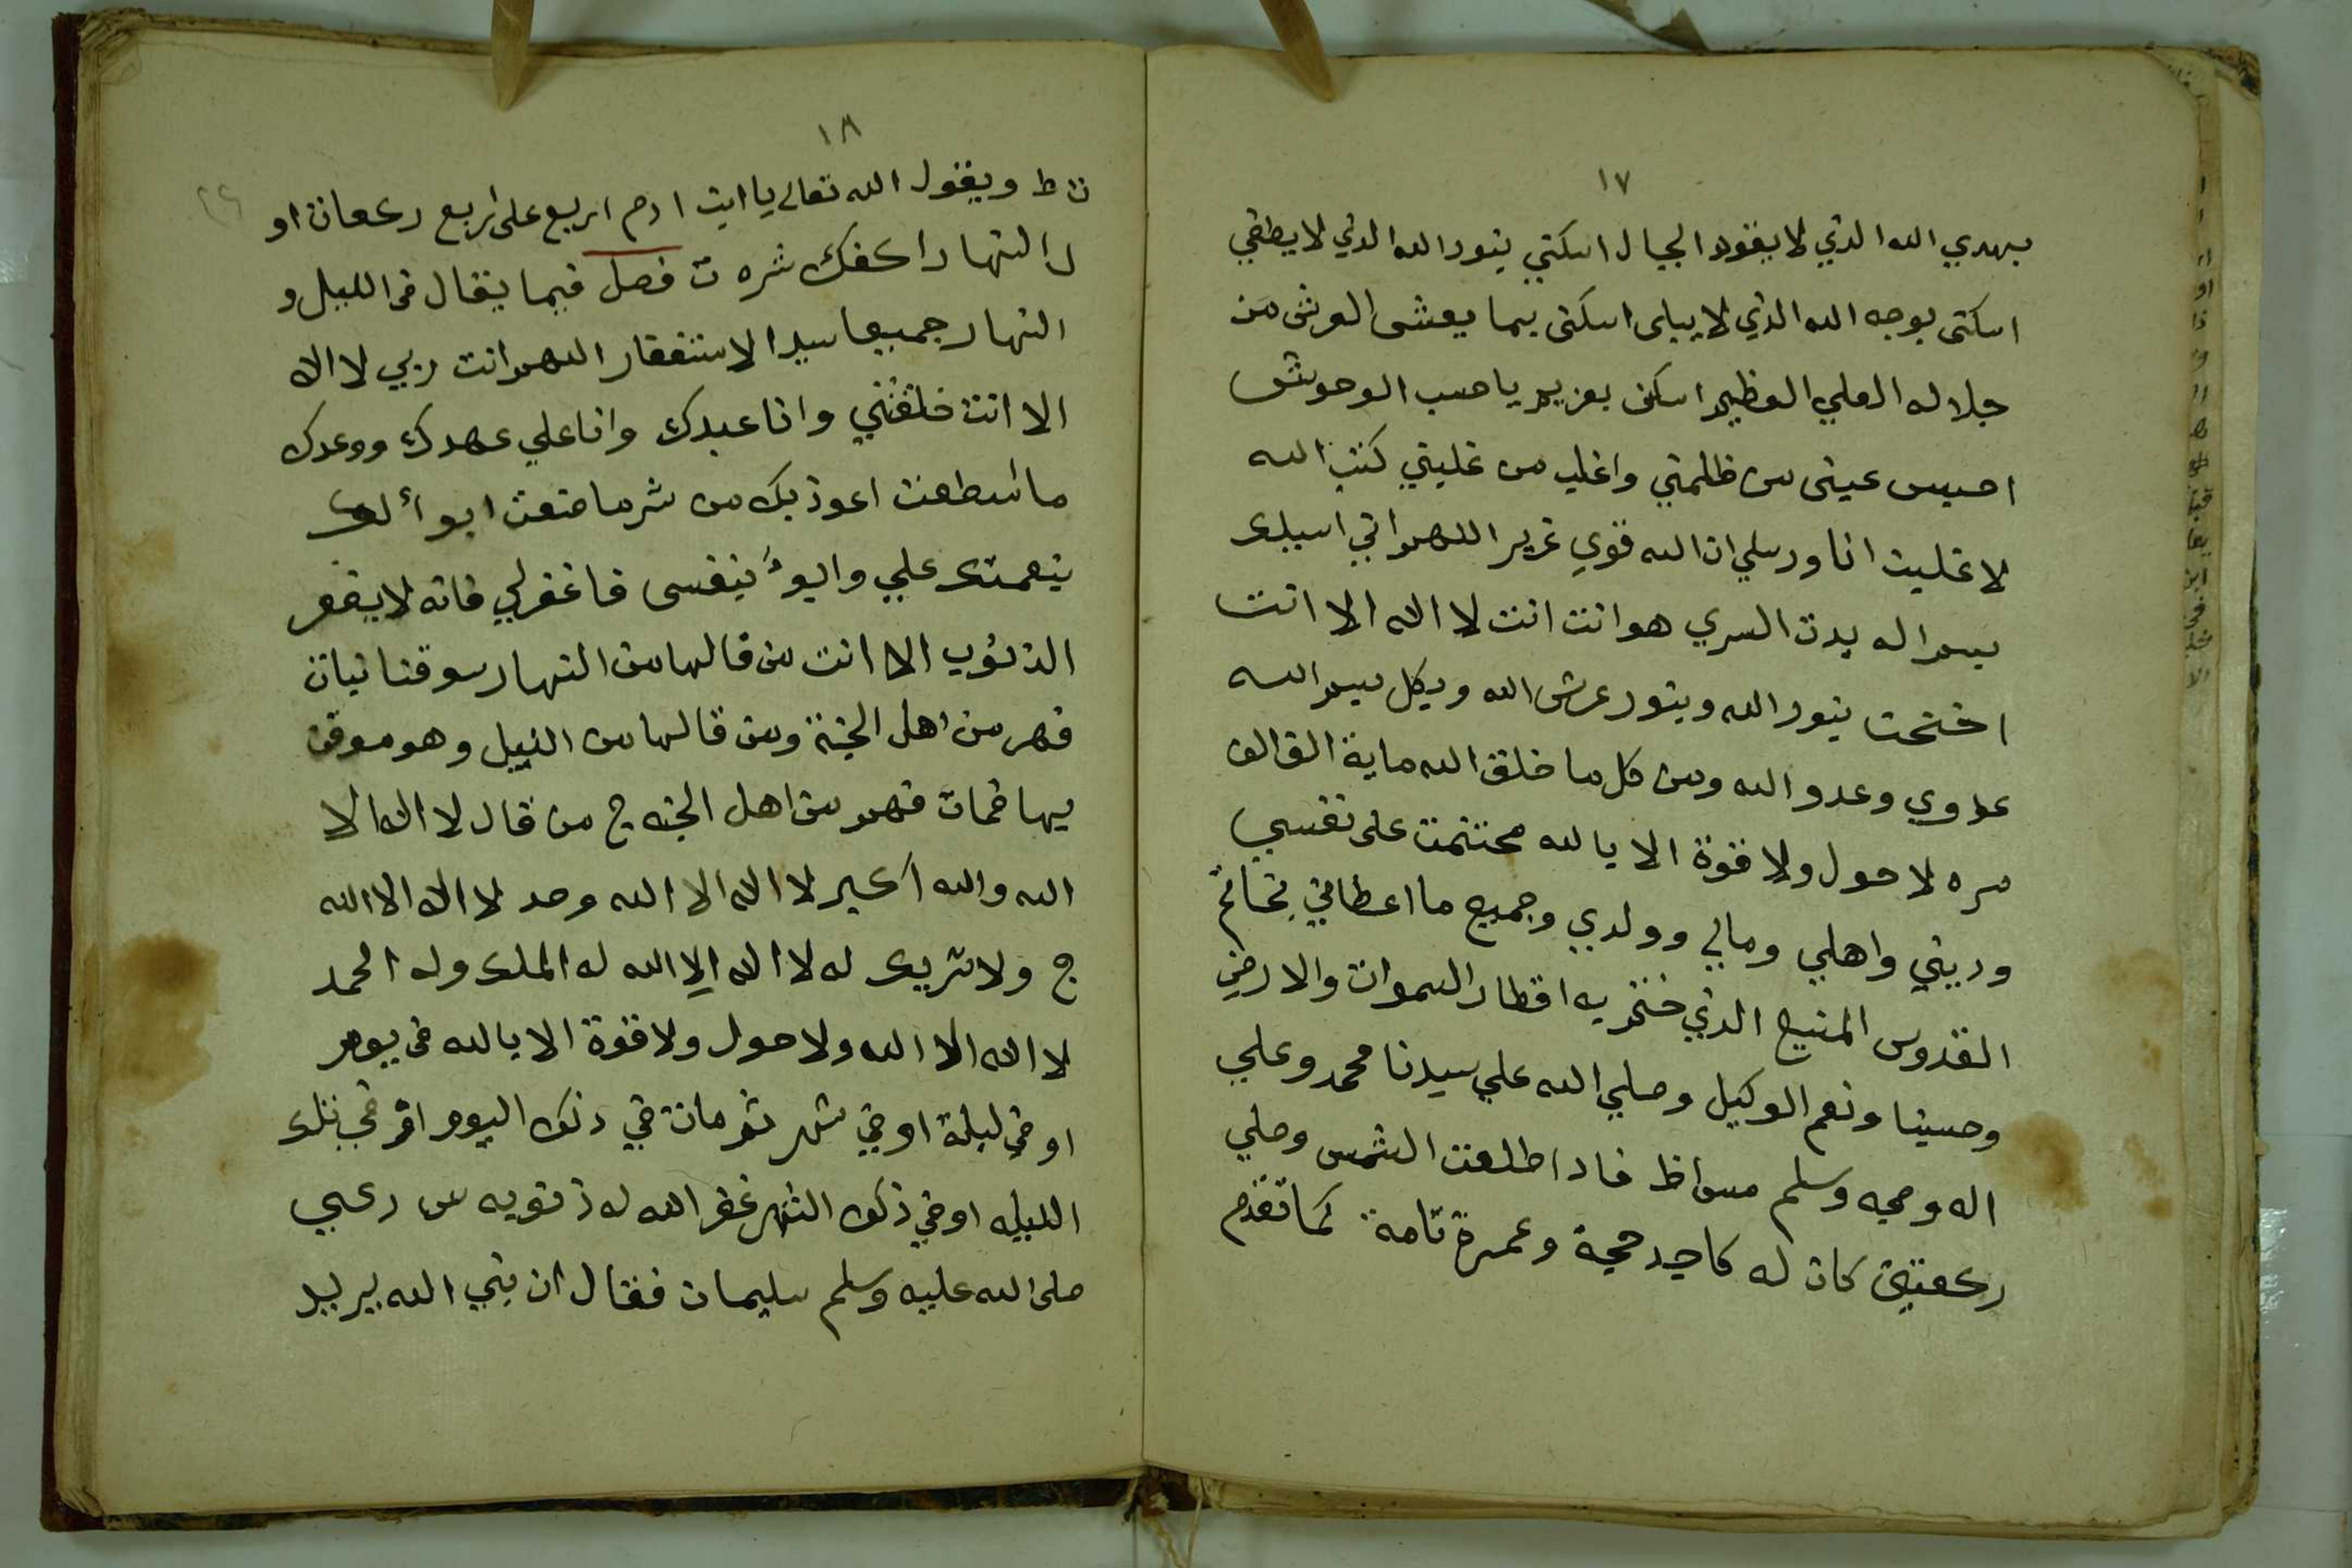 ١٧
بهدي الله الذي لا يغود الجبال اسكتي بنور الله الذي لا يطفي
اسكتي بوجه الله الذي لا يبلى اسكتى بما يعشى العرش من
جلاله العلي العظيم اسكن بعزيم يا حسب الوحوش
احبس عينى من ظلمني واغلب من غلبني كتب الله
لا غلبت انا ورسلي ان الله قوي عزيز اللهم اني اسلك
بسم اله بدت السري هو انت انت لا اله الا انت
اختحت بنور الله وبنور عرش الله وبكل بسم الله
عدوي وعدو الله ومن كل ما خلق الله ماية الف الف
مره لا حول ولا قوة الا بالله محتتمت على نفسي
وديني واهلي ومالي وولدي وجميع ما اعطاني بخاتم
القدوس المنيع الذي ختم به اقطار السموات والارض
وحسبنا ونعم الوكيل وصلي الله علي سيدنا محمد وعلي
اله وصحبه وسلم فاذا طلعت الشمس وصلي
ركعتين كان له كاجد حجة وعمرة تامة كما تقدم
١٨
ن ط ويقول الله تعالى يا ابت ادم اربع على اربع ركعات او
ل النهار اكفك شره ت فصل فيما يقال فى الليل و
النهار جميعا سيد الاستغفار اللهم انت ربي لا اله
الا انت خلقتني وانا عبدك وانا علي عهدك ووعدك
ما اسطعت اعوذ بك من شر ما صنعت ابوأ لك
بنعمتك علي وابوءُ بنفسى فاغفرلي فانه لا يغفر
الذنوب الا انت من قالها من النهار موقنا نبات
فهر من اهل الجنة ومن قالها من اليل وهو موقن
بها فمات فهو من اهل الجنه ج من قال لا اله الا
الله والله اكبر لا اله الا الله وحد لا اله الا الله
ج ولا شريك له لا اله الا الله له الملك وله الحمد
لا اله الا الله ولا حول ولا قوة الا بالله فى يوم
او في ليلة او في شهر ثم مات في ذلك اليوم او في تلك
الليله او في ذلك الشهر غفر الله له ذنوبه س
صلى الله عليه وسلم سليمان فقال ان نبي الله يريد